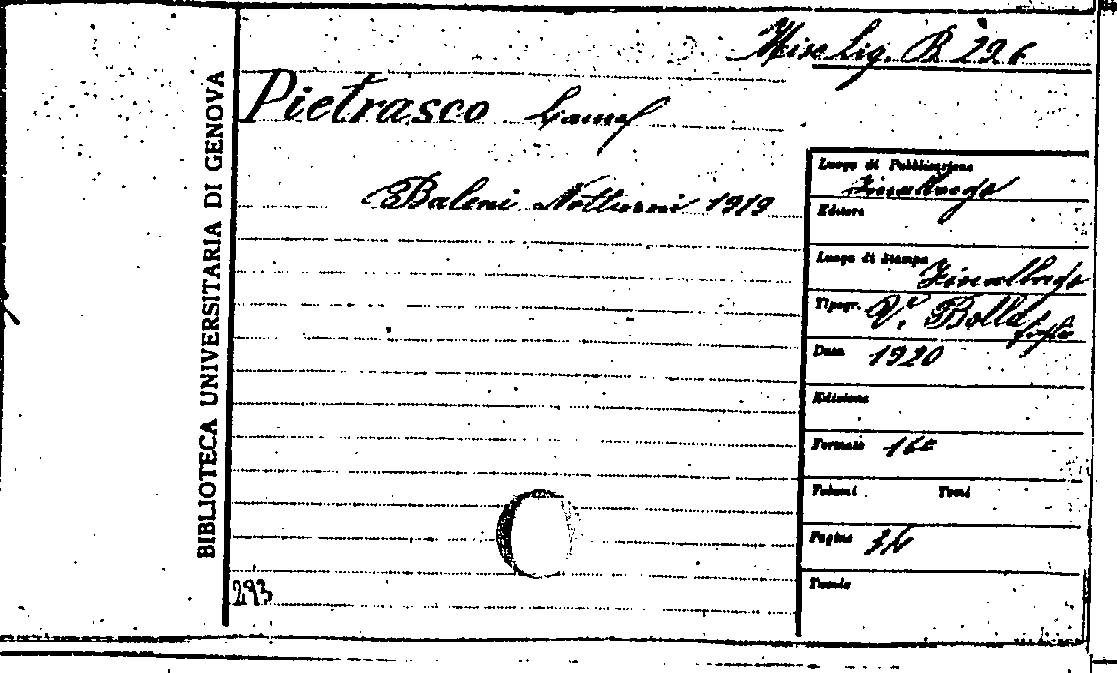 Misc Lig. B 226
Pietrasco
Baleni Notturni 1919
BIBLIOTECA UNIVERSITARIA DI GENOVA
Luogo di Pubblicazione
Finalborgo
Editore
Luogo di Stampa Finalborgo
Tipogr. V. Bolla
Data 1920
Edizione
Formato 16°
Volumi Tomi
Pagine
Tavole
293